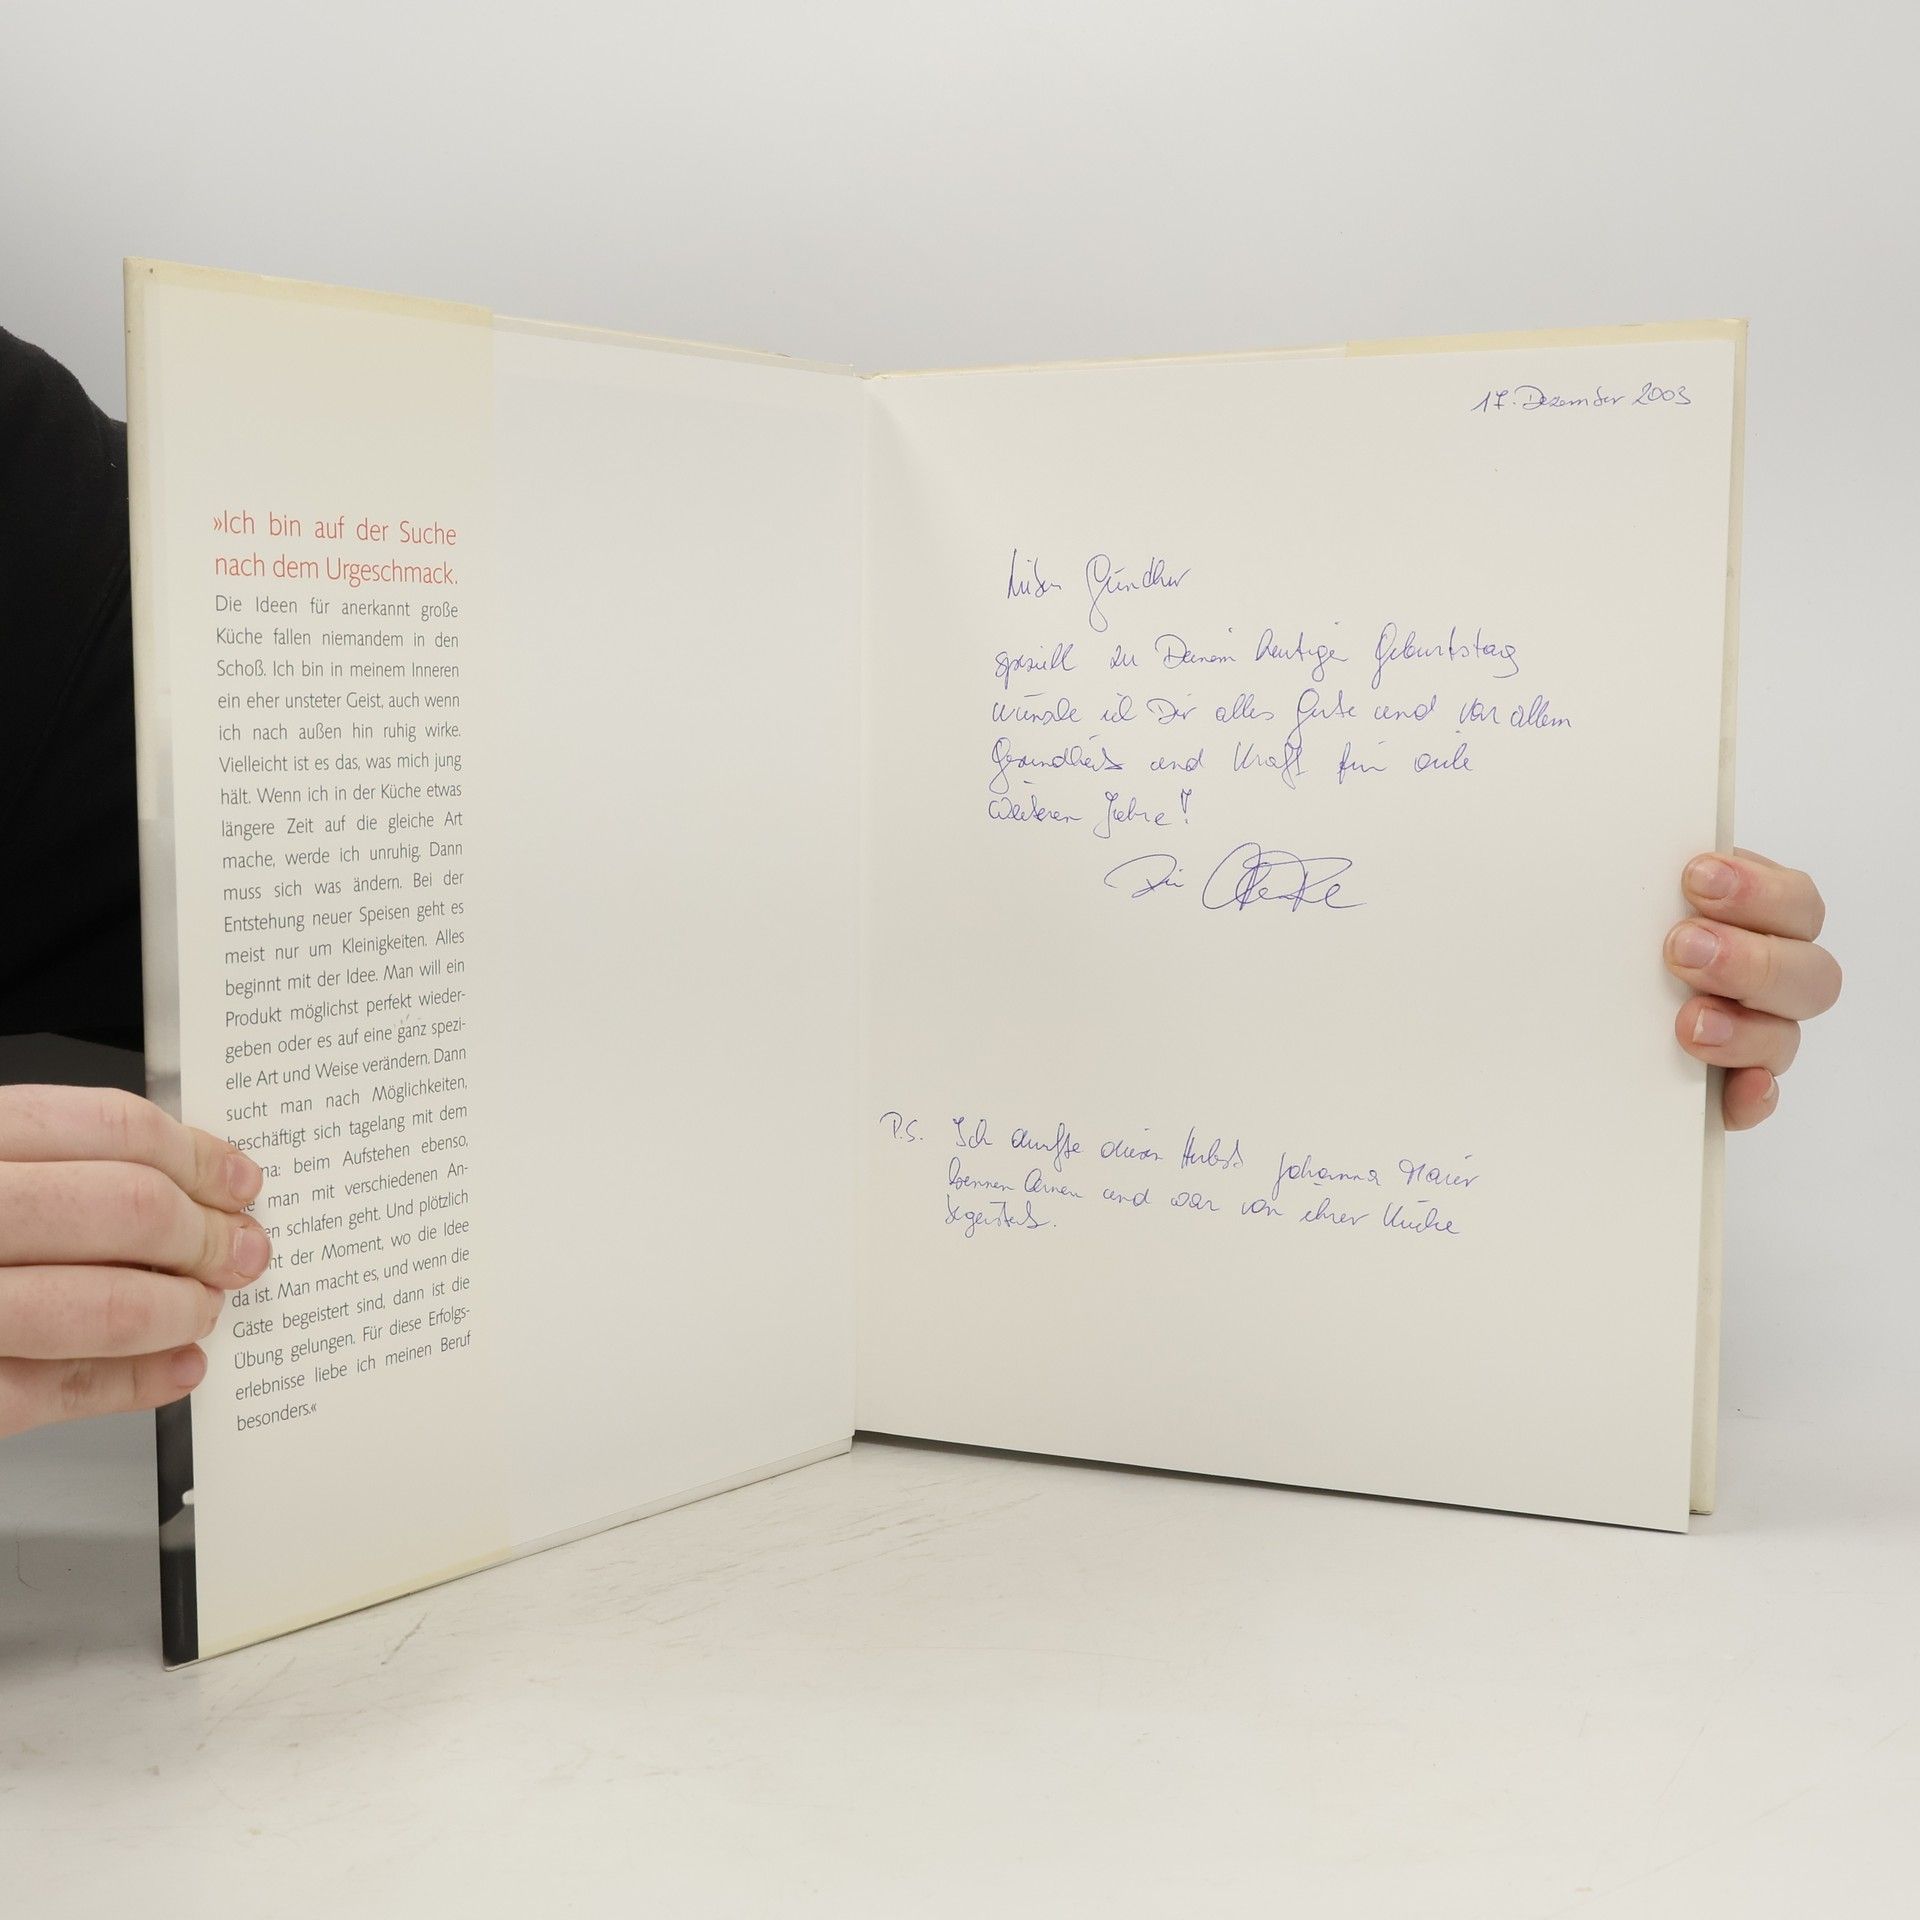 »Ich bin auf der Suche
nach dem Urgeschmack.
Die Ideen für anerkannt große
Küche fallen niemandem in den
Schoß. Ich bin in meinem Inneren
ein eher unsteter Geist, auch wenn
ich nach außen hin ruhig wirke.
Vielleicht ist es das, was mich jung
hält. Wenn ich in der Küche etwas
längere Zeit auf die gleiche Art
mache, werde ich unruhig. Dann
muss sich was ändern. Bei der
Entstehung neuer Speisen geht es
meist nur um Kleinigkeiten. Alles
beginnt mit der Idee. Man will ein
Produkt möglichst perfekt wieder-
geben oder es auf eine ganz spezi-
elle Art und Weise verändern. Dann
sucht man nach Möglichkeiten,
beschäftigt sich tagelang mit dem
ma: beim Aufstehen ebenso,
man mit verschiedenen An-
en schlafen geht. Und plötzlich
nt der Moment, wo die Idee
da ist. Man macht es, und wenn die
Gäste begeistert sind, dann ist die
Übung gelungen. Für diese Erfolgs-
erlebnisse liebe ich meinen Beruf
besonders.«
17. Dezember 2003
Lieber Günther
speziell zu Deinem heutigen Geburtstag
wünsche ich Dir alles Gute und vor allem
Gesundheit und Kraft für viele
weiteren Jahre!
Dein
P.S. Ich durfte diesen Herbst Johanna Maier
kennen lernen und war von ihrer Küche
begeistert.